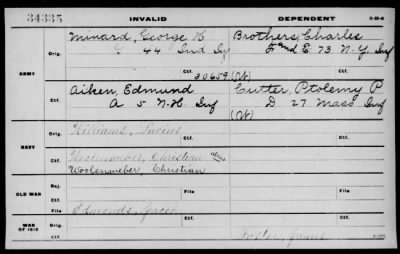 34335 INVALID DEPENDENT 3-H-6
Minard, George H Brothers, Charles
Orig. 44 Ind Inf F and E 73 N.Y Inf
Ctf. 30659 (W)
ARMY
Aiken, Edmund Cutter, Ptolemy P
Orig. A 5 N.H. Inf D 27 Mass Inf
Ctf. (W)
Williams,
Orig. Ctf.
NAVY
Christian alias
Woolenweber, Christian
Ctf.
Rej. Ctf.
OLD WAR
File Ctf.
Edmonds, Jacob
Orig. Ctf.
WAR OF 1812
Ctf. James